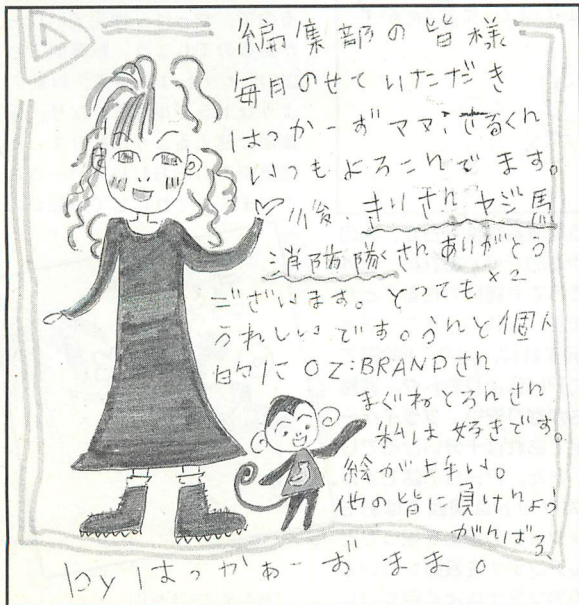 編集部の皆様
毎月のせていただき
はっかーずママ、さるくん
いつもよろこんでます。
後、きりさん ヤジ馬
消防隊さんありがとう
ございます。とっても
うれしいです。うんと個人
的に OZ:BRANDさん
まぐねとろんさん
私は好きです。
絵が上手い。
他の皆に負けんよう
がんばろ、
by はっかぁーずまま。